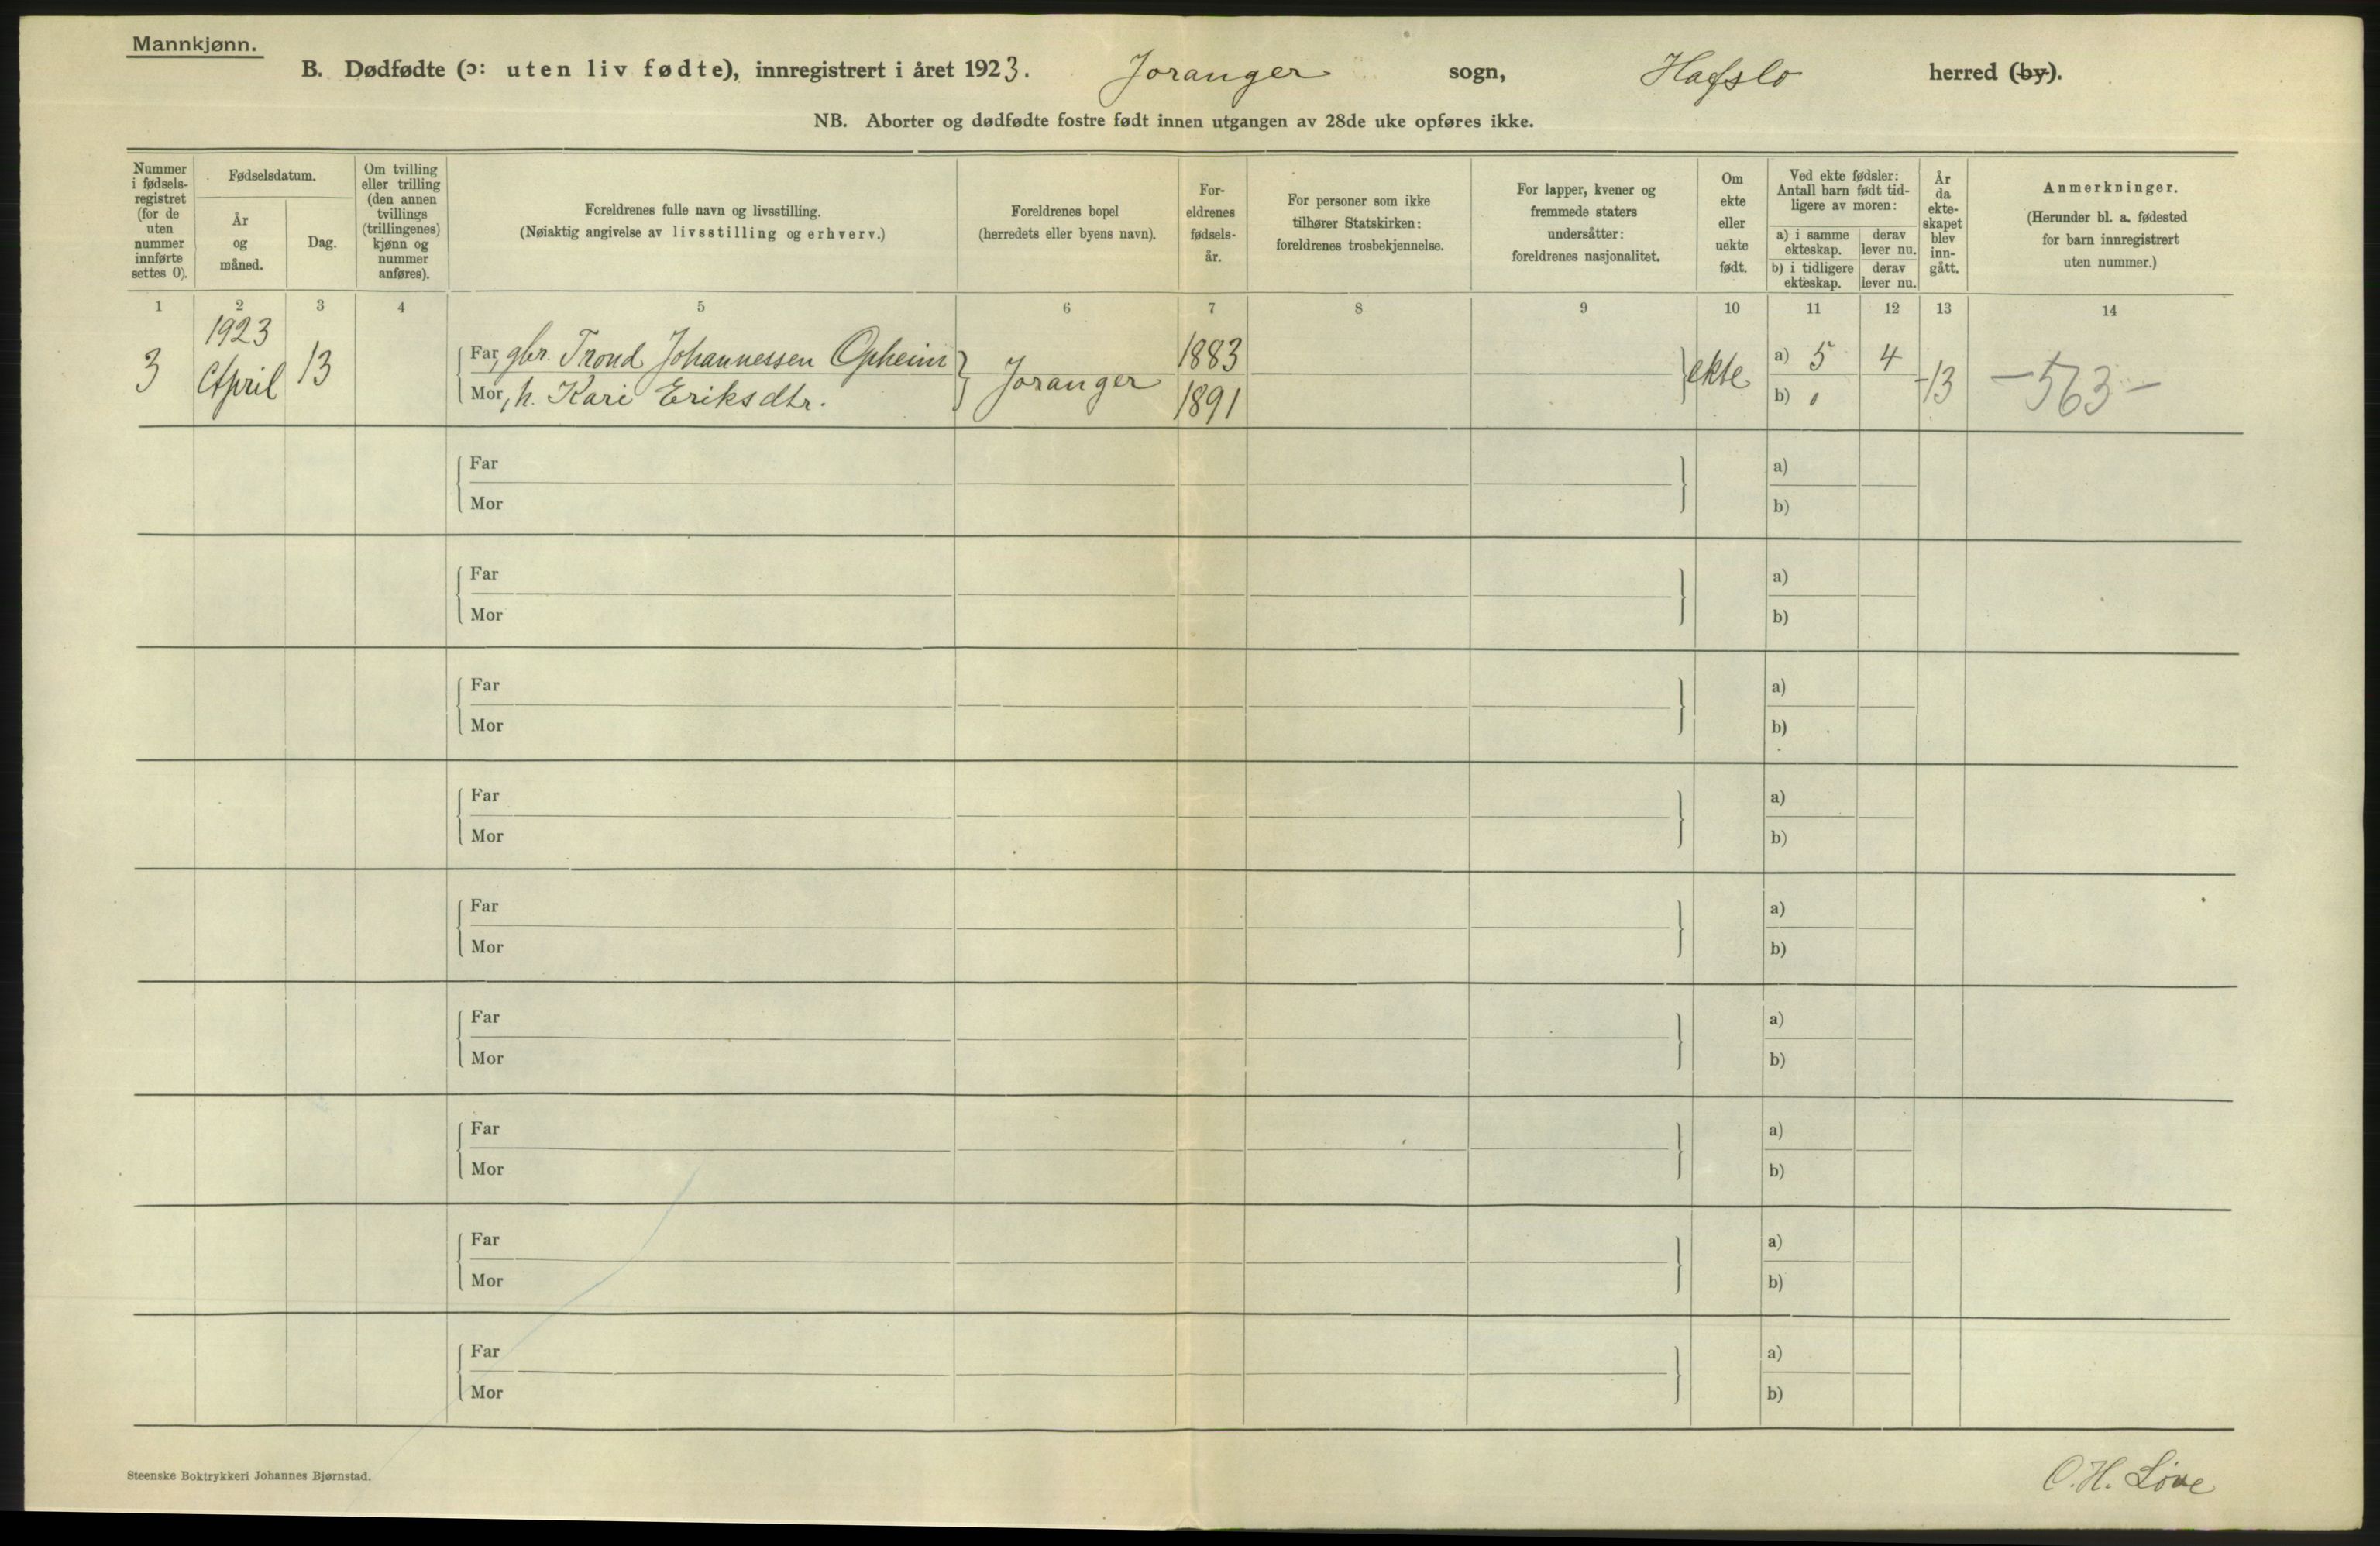 Mannkjønn.
B. Dødfødte (ɔ: uten liv fødte), innregistrert i året 1923. Joranger sogn, Hafslo herred (by).
NB. Aborter og dødfødte fostre født innen utgangen av 28de uke opføres ikke.
Nummer i fødsels-registret (for de uten nummer innførte settes 0).
Fødselsdatum.
År og måned.
Dag.
Om tvilling eller trilling (den annen tvillings (trillingenes) kjønn og nummer anføres).
Foreldrenes fulle navn og livsstilling.
(Nøiaktig angivelse av livsstilling og erhverv.)
Foreldrenes bopel
(herredets eller byens navn).
For-eldrenes fødsels-år.
For personer som ikke tilhører Statskirken: foreldrenes trosbekjennelse.
For lapper, kvener og fremmede staters undersåtter: foreldrenes nasjonalitet.
Om ekte eller uekte født.
Ved ekte fødsler: Antall barn født tid-ligere av moren:
a) i samme ekteskap.
derav lever nu.
b) i tidligere ekteskap.
derav lever nu.
År da ekte-skapet blev inn-gått.
Anmerkninger.
(Herunder bl. a. fødested for barn innregistrert uten nummer.)
1 2 3 4 5 6 7 8 9 10 11 12 13 14
3 1923 April 13
Far, gbr. Trond Johannessen Opheim
Mor, h. Kari Eriksdtr.
Joranger
1883
1891
ekte
a) 5 4
b) 0
-13
-563-
Far
Mor
a)
b)
Far
Mor
a)
b)
Far
Mor
a)
b)
Far
Mor
a)
b)
Far
Mor
a)
b)
Far
Mor
a)
b)
Far
Mor
a)
b)
Far
Mor
a)
b)
Far
Mor
a)
b)
Steenske Boktrykkeri Johannes Bjørnstad.
O. H. Løve